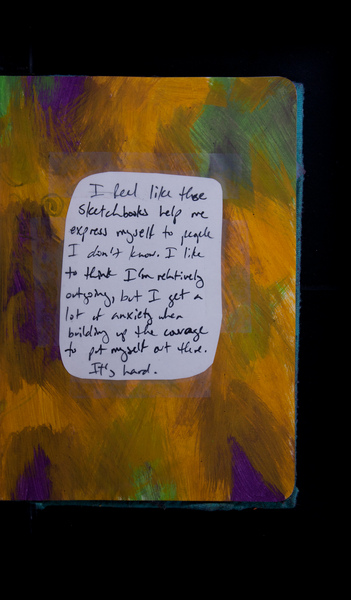 I feel like these
sketchbooks help me
express myself to people
I don't know. I like
to think I'm relatively
outgoing, but I get a
lot of anxiety when
building up the courage
to put myself out there.
It's hard.